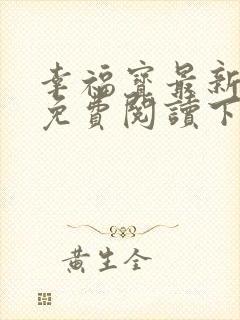 幸福寶最新
免費閱讀下
黃生全